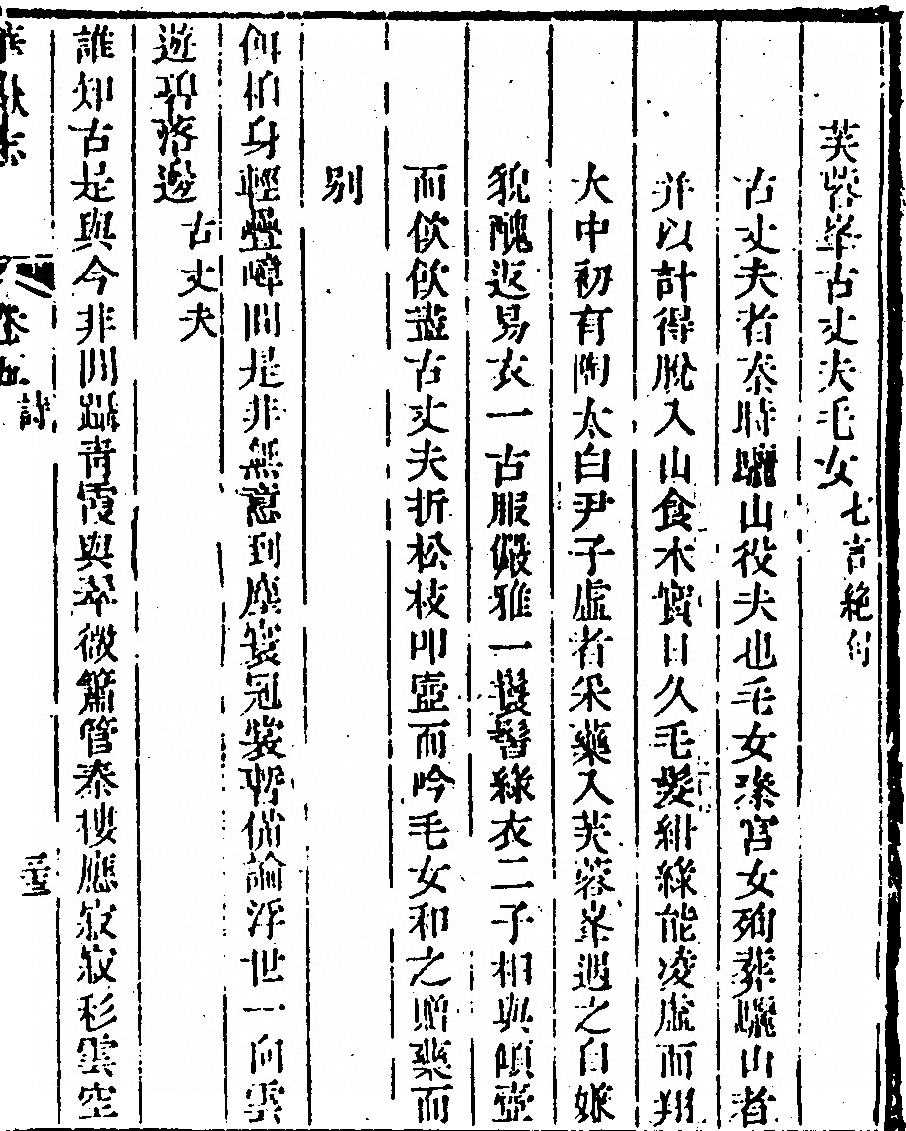 芙蓉峯古丈夫毛女七言絶句
古丈夫者秦時驪山役夫也毛女秦宮女殉葬驪山者
并以計得脫入山食木實日久毛髮紺綠能凌虛而翔
大中初有陶太白尹子虛者采藥入芙蓉峯遇之自嫌
貌醜返易衣一古服儼雅一鬟髻綵衣二子相與傾壺
而飲飲盡古丈夫折松枝叩壺而吟毛女和之贈藥而
別
何柏身輕疊嶂間是非無意到塵寰冠裳暫備論浮世一向雲
遊碧落邊 古丈夫
誰知古是與今非閒躡青霞與翠微簫管秦樓應寂寂彩雲空
卷五 詩